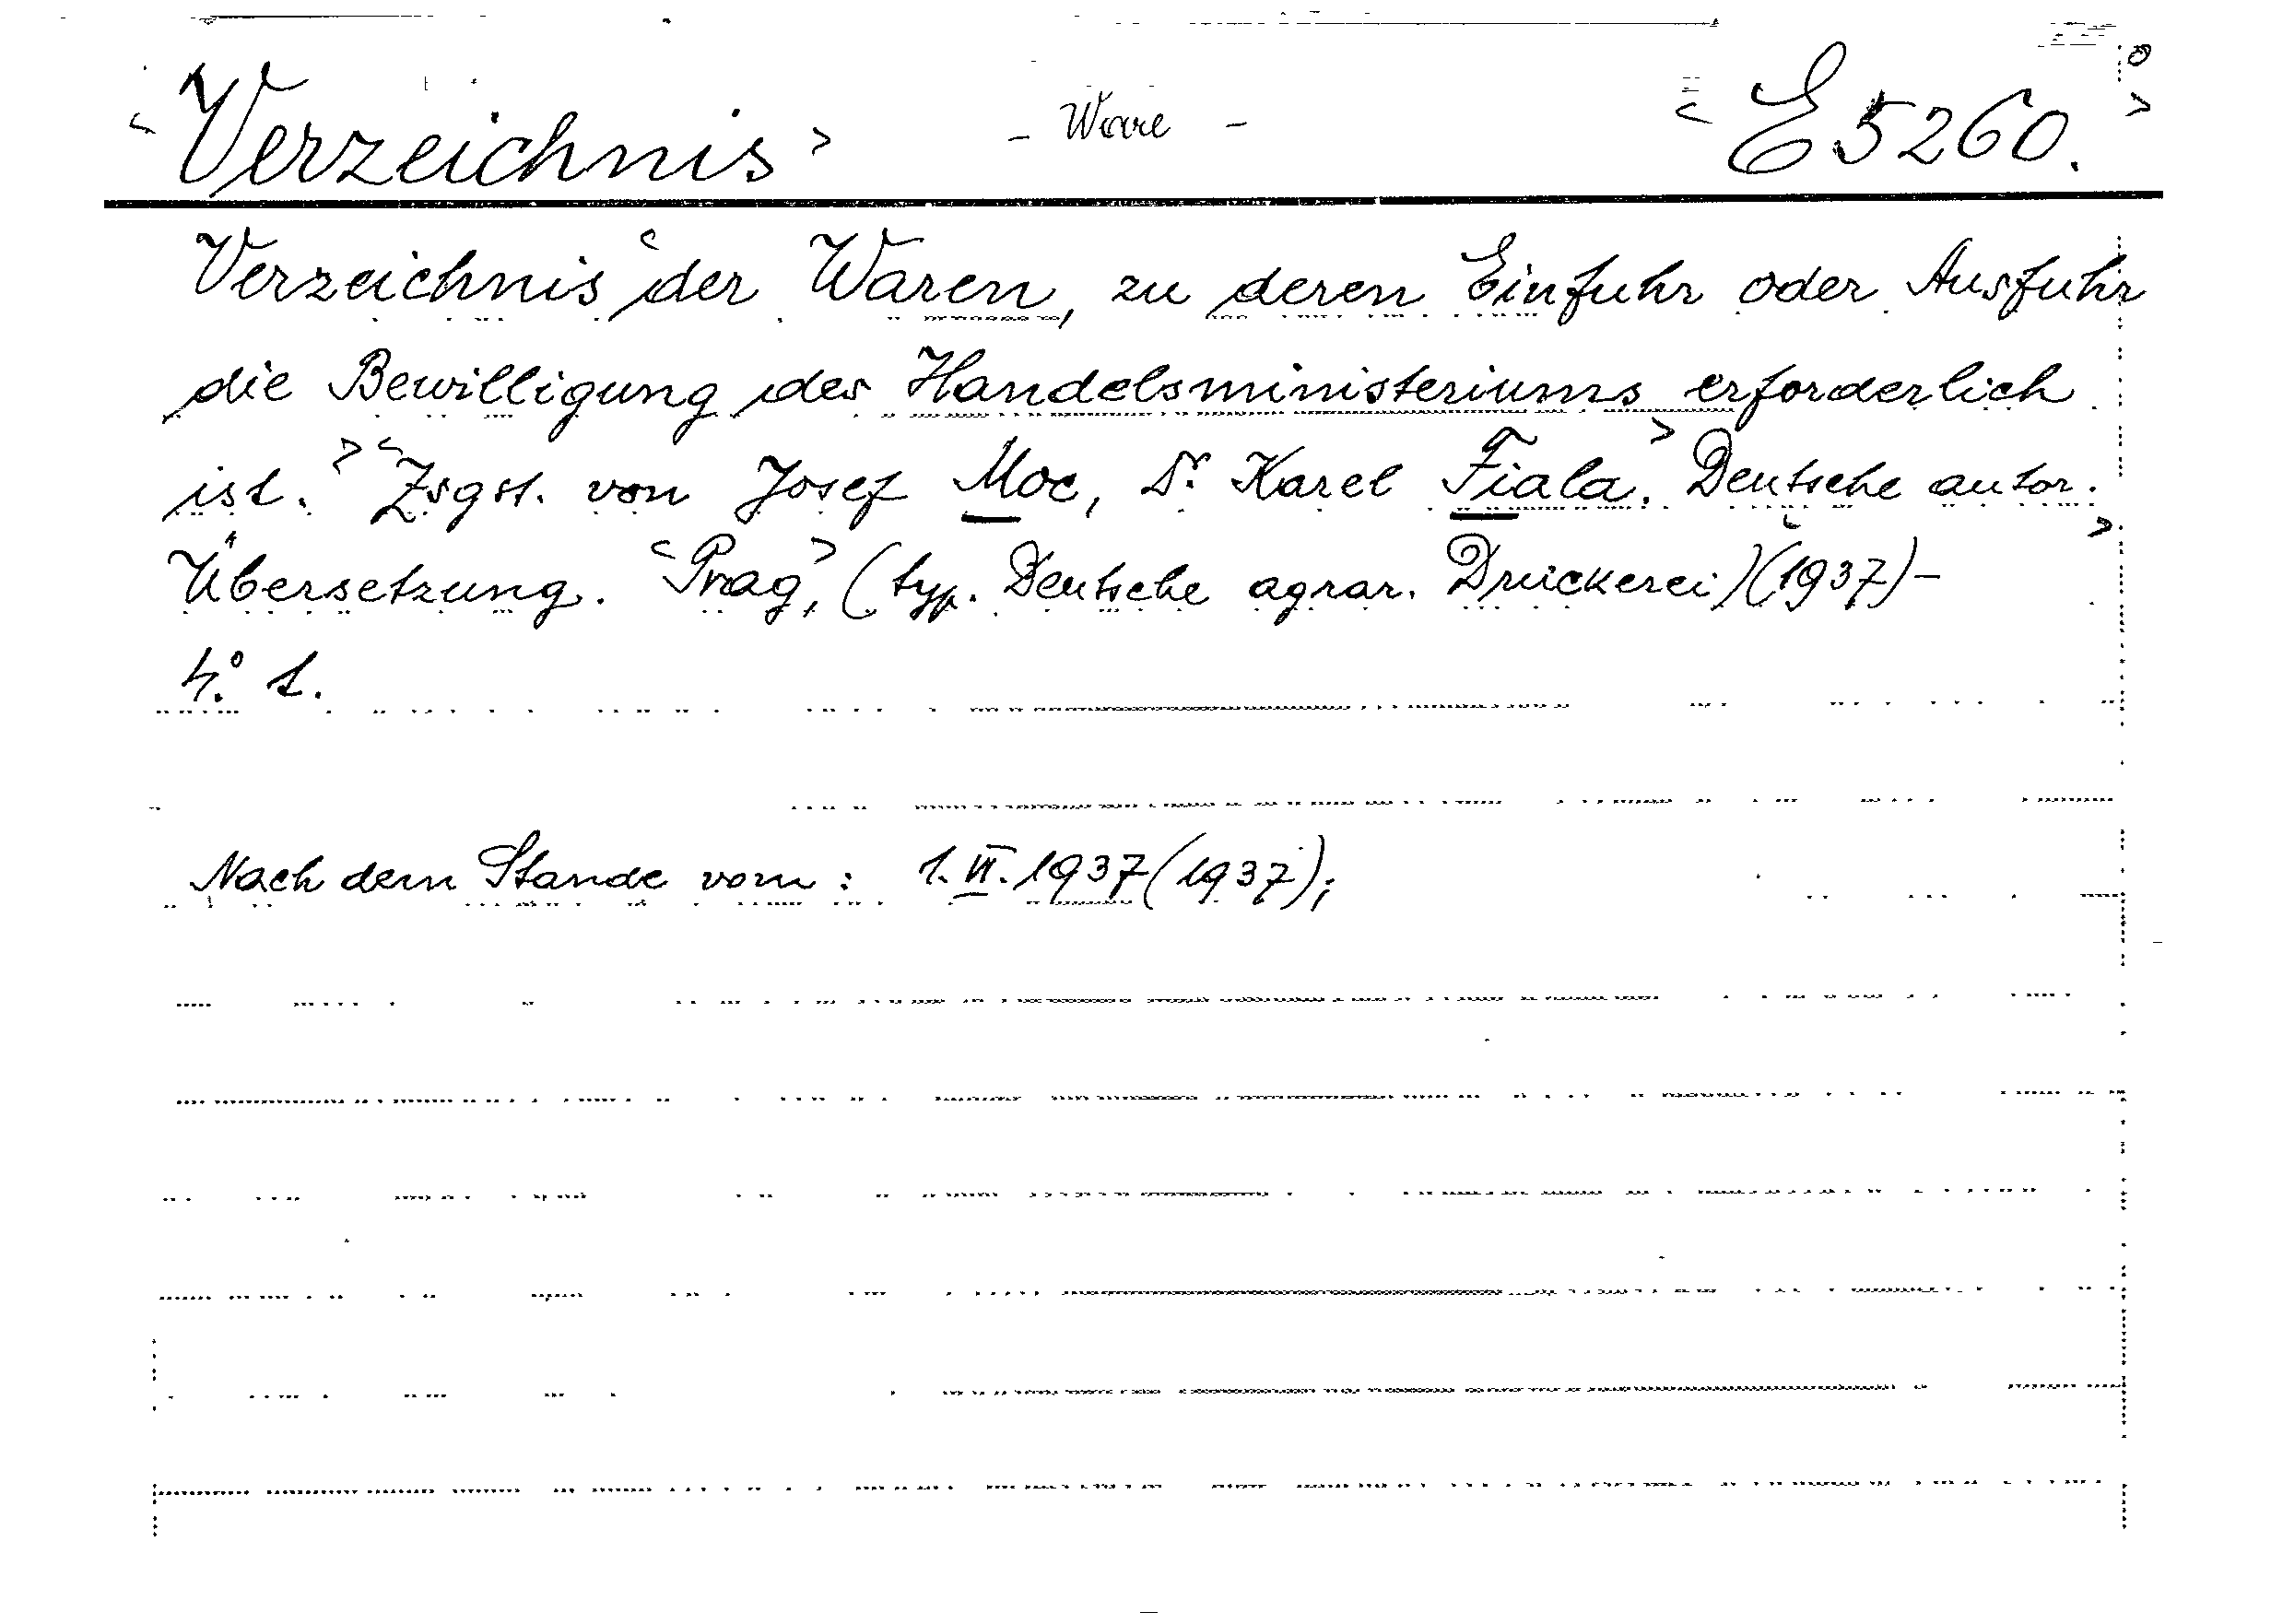 <Verzeichnis> - Ware - <E 5260.>
Verzeichnis <der Waren, zu deren Einfuhr oder Ausfuhr
die Bewilligung des Handelsministeriums erforderlich
ist.> <Zsgst. von Josef Moc, Dr Karel Fiala.> Deutsche autor.
Übersetzung. <Prag,> (typ. Deutsche agrar. Druckerei) <(1937)-
4.° 1.
Nach dem Stande vom: 1.VI.1937 (1937);